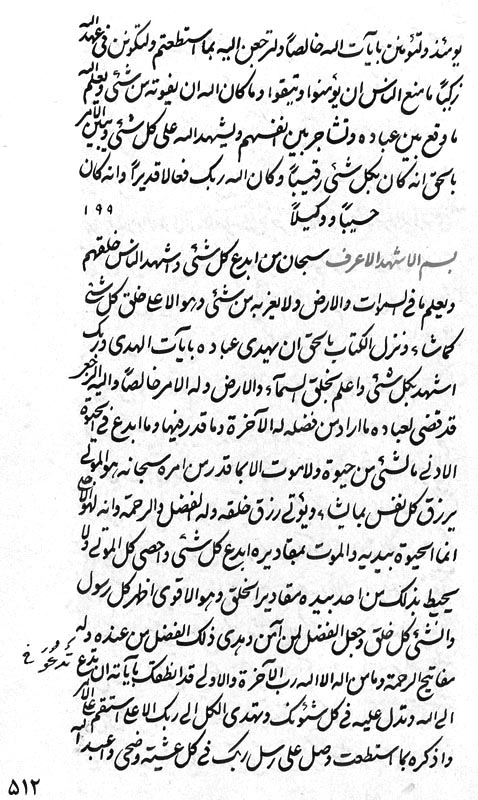 يومئذ ولتؤمنن بايآت الله خالصاً ولترجعن اليه بما استطعتم ولتكونن في عهد الله
زكياً ما منع الناس ان يؤمنوا ويتقوا وما كان الله ان يفوته من شئ ويعلم الله
ما وقع بين عباده وتشاجر بين انفسهم ويشهد الله على كل شئ ويبين الامر
بالحق انه كان بكل شئ رقيباً وكان الله ربك فعالا قديراً وانه كان
حسيباً ووكيلاً ١٩٩
بسم الاشهد الاعرف سبحان من ابدع كل شئ واشهد الناس خلقهم
ويعلم ما في السموات والارض ولا يعزب من شئ وهو الاعلى خلق كل شئ
كما شاء ونزل الكتاب بالحق ان يهدي عباده بايآت الهدى وربك
اشهد بكل شئ واعلم بخلق السماء والارض وله الامر خالصاً واليه ارجعوا
قد قضى لعباده ما اراد من فضله له الآخرة وما قدر فيها وما ابدع في الحيوة
الادنى ما لشئ من حيوة ولا موت الا بما قدر من امره سبحانه هو المولى
يرزق كل نفس بما يشاء ويؤتي رزق خلقه وله الفضل والرحمة وانه لهو الاعلى
انما الحيوة بيديه والموت بمقاديره ابدع كل شئ واحصى كل الموتى ولا
يحيط بذلك من احد بيده مقادير الخلق وهو الاقوى اظهر كل رسول
وانشئ كل خلق وجعل الفضل لمن آمن وهدى ذلك الفضل من عنده وله
مفاتيح الرحمة وما من اله الا الله رب الآخرة والاولى قد انطقك بايآته ان تدع
تدعو خ
الى الله وتدل عليه في كل شئونك وتهدي الكل الى ربك الاعلى استقم على الامر
واذكره بما استطعت وصل على رسل ربك في كل عشية وضحى واعبد الله
٥١٢